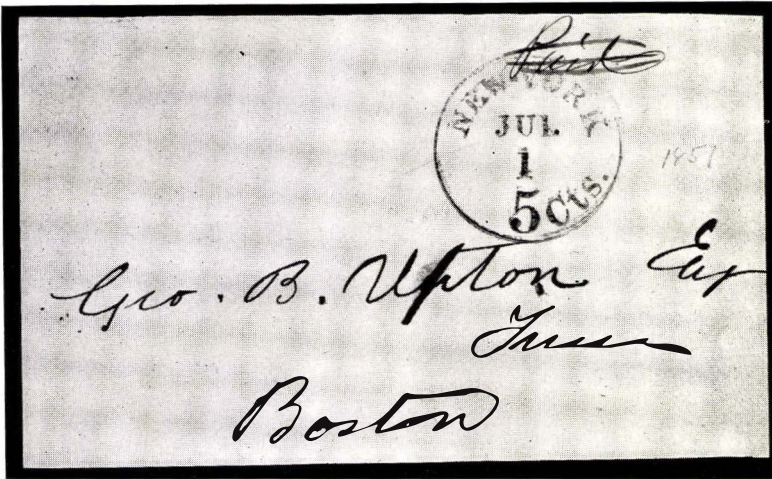 Paid
NEW YORK
JUL
1
5 Cts.
1851
Geo. B. Upton Esq
Boston